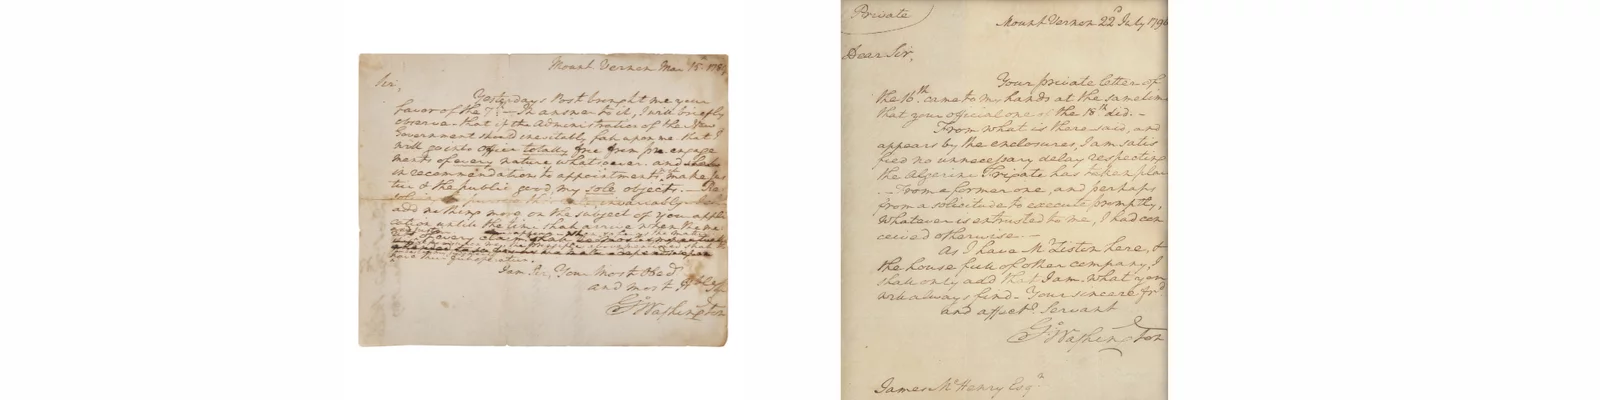 Mount Vernon Mar 15th 1789
Sir,
Yesterdays Post brought me your
favor of the 7th — In answer to it, I will briefly
observe that if the Administration of the New
Government should inevitably fall upon me that I
will go into office totally free from pre engage
ments of every nature whatsoever. and
in recommendations to appointments make jus
tice & the public good, my sole objects. —
invariably
add nothing more on the subject of your appli
cation until the time shall arrive when the me
rits of every claim
have their full operation.
I am Sir, Your Most Obed
and most Hble Ser
Go Washington
Private
Mount Vernon 22d July 1796
Dear Sir,
Your private letter of
the 16th came to my hands at the same time
that your official one of the 18th did. —
From what is there said, and
appears by the enclosures, I am satis
fied no unnecessary delay respecting
the Algerine Frigate has taken place
— From a former one, and perhaps
from a solicitude to execute promptly,
whatever is entrusted to me, I had con
ceived otherwise. —
As I have Mr Liston here, &
the house full of other company, I
shall only add that I am, what you
will always find — Your sincere frd
and affecte Servant
Go Washington
James McHenry Esqr